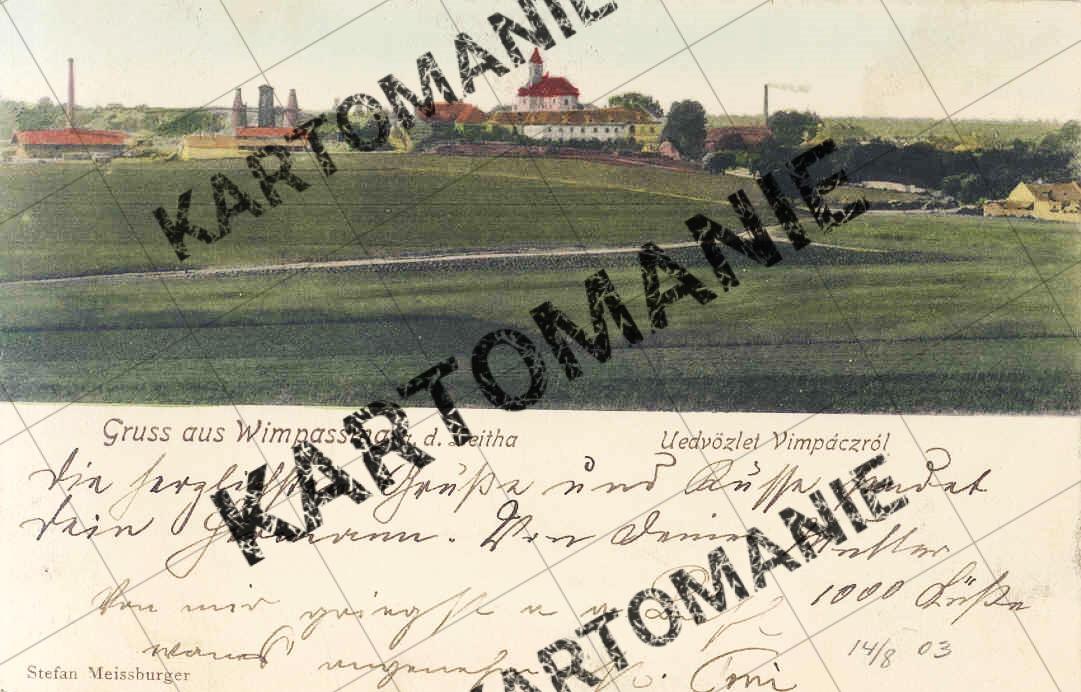 KARTOMANIE
KARTOMANIE
KARTOMANIE
KARTOMANIE
KARTOMANIE
Gruss aus Wimpassing a. d. Leitha
Uedvözlet Vimpáczról
Die herzlichsten Grüße und Küsse sendet
Dein Hermann. Von Deiner Mutter
1000 Küße
Von mir
14/8 03
Toni
Stefan Meissburger